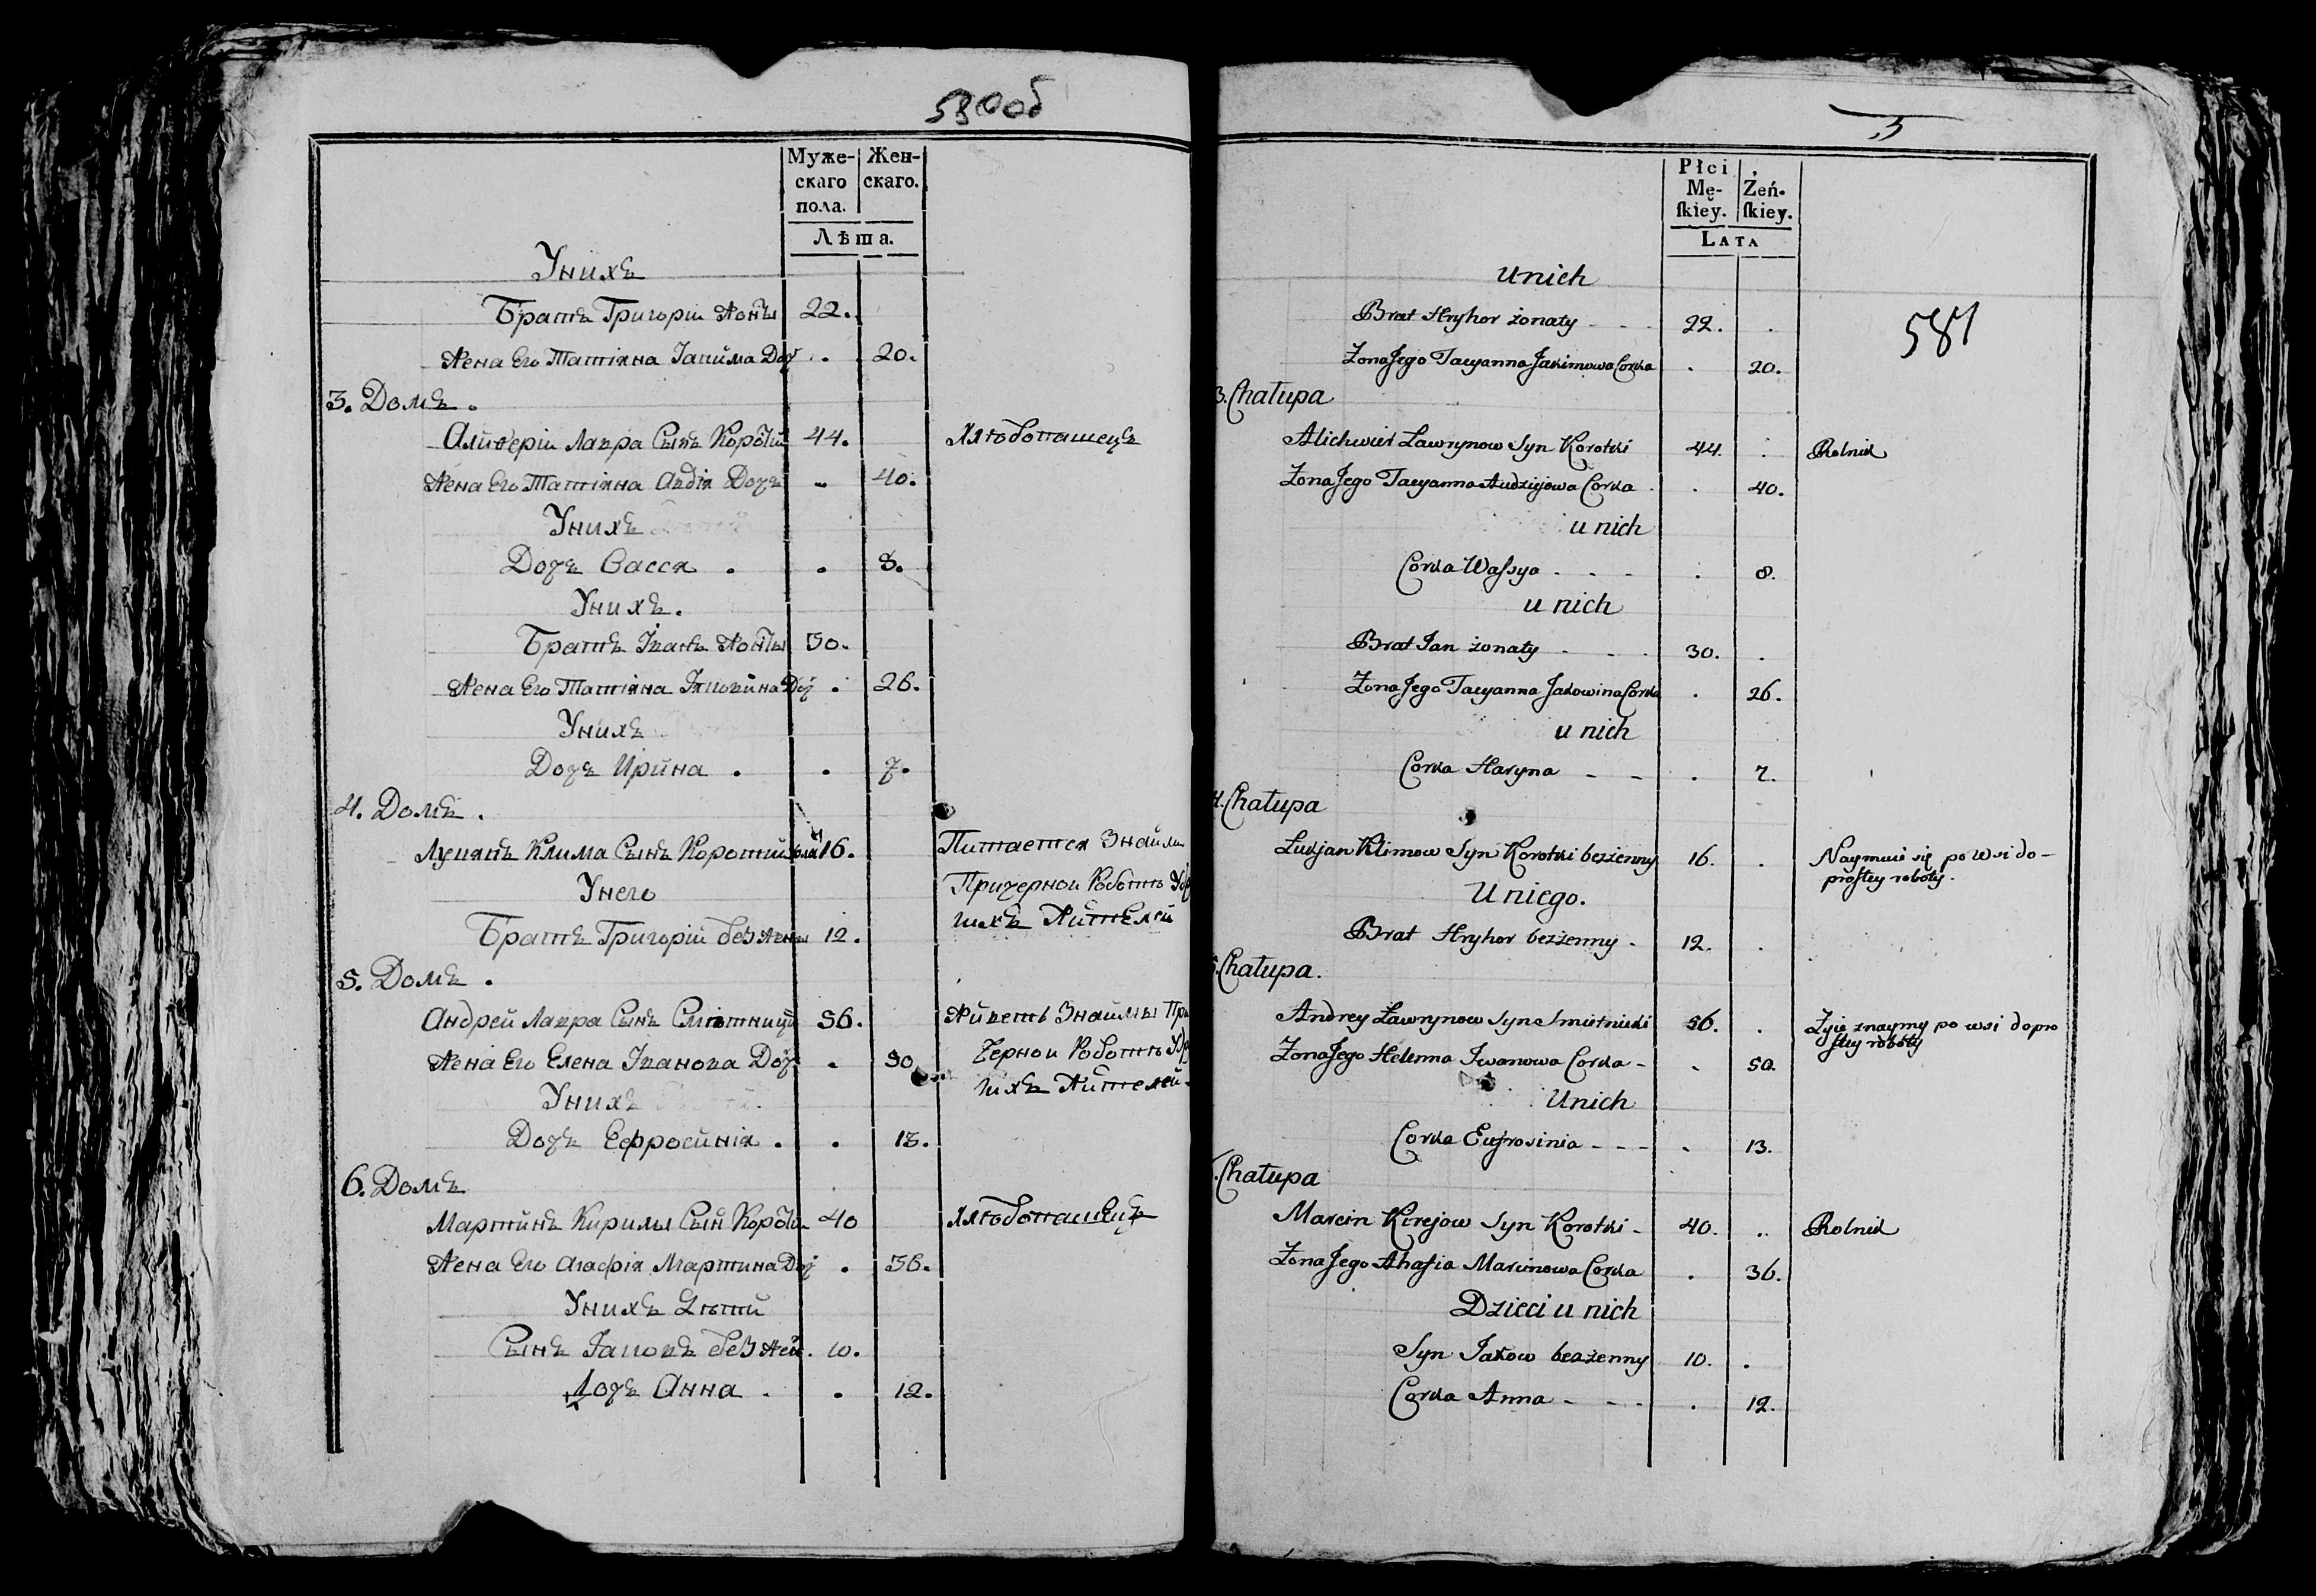 580об
Муже-
скаго
пола.
Жен-
скаго.
Лѣта.
Унихъ
Братъ Григорій Жонты 22.
Жена Его Татіяна Іакима Доч . 20.
3. Домъ.
Алиферій Лавра Сынъ Короткій 44. Хлѣбопашецъ
Жена Его Татіяна Авдія Дочь 40.
Унихъ
Дочь Васса . . 8.
Унихъ.
Братъ Іванъ Жонты 30.
Жена Его Татіяна Іаковина Доч . 26.
Унихъ
Дочь Ирина . . 7.
4. Домъ.
Лукянъ Клима Сынъ Короткій 16. Питается Знаймы
Унего Пričерной Роботѣ
Братъ Григорій без Жены 12. гихъ Жителей
5. Домъ.
Андрей Лавра Сынъ Смѣтницкій 56. Живетъ Знаймы При
Жена Его Елена Іванова Доч . 50 Черной Роботѣ
Унихъ гихъ Жителей
Дочь Ефросинія . . 13.
6. Домъ
Мартинъ Кирилы Сын Короткій 40 Хлѣбопашецъ
Жена Его Агафія Мартина Доч . 36.
Унихъ Дѣти
Сынъ Іаковъ без Жен. 10.
Дочь Анна . . 12.
5
587
Płci
Mę-
ſkiey.
Żeń-
ſkiey.
LATA
unich
Brat Hryhor żonaty - - - 22. .
Zona Jego Tacyanna Jakimowa Corka . 20.
3. Chałupa
Alichwier Ławrynow Syn Korotki 44. . Rolnik
Zona Jego Tacyanna Audziejowa Corka . 40.
u nich
Corka Waſsya - - - . 8.
u nich
Brat Jan żonaty - - - 30. .
Zona Jego Tacyanna Jakowina Corka . 26.
u nich
Corka Haryna - - . 7.
4. Chałupa
Łukjan Klimow Syn Korotki bezżenny 16. . Naymuie się po wsi do-
U niego. proſtey roboty.
Brat Hryhor bezżenny - 12. .
5. Chałupa.
Andrey Ławrynow Syn Smietnicki 56. . Żyie znaymy po wsi dopro
Zona Jego Helenna Iwanowa Corka - . 50. ſtey roboty
Unich
Corka Eufrosinia - - - . 13.
. Chałupa
Marcin Kirejow Syn Korotki - 40. .. Rolnik
Zona Jego Ahafia Marcinowa Corka . 36.
Dzieci u nich
Syn Jakow bezżenny 10. .
Corka Anna - - - . 12.